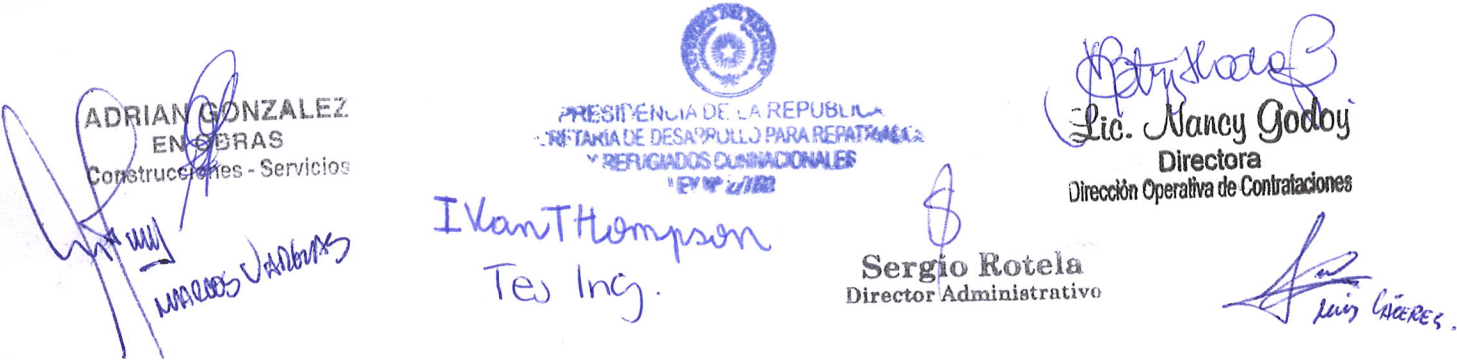 ADRIAN GONZALEZ
EN OBRAS
Construcciones - Servicios
MARCOS VARGAS
PRESIDENCIA DE LA REPUBLICA
DE DESARROLLO PARA REPATRIADOS
Y REFUGIADOS CONNACIONALES
LEY Nº
Ivan THompson
Tes Ing.
Sergio Rotela
Director Administrativo
Lic. Nancy Godoy
Directora
Dirección Operativa de Contrataciones
Luis CÁCERES.